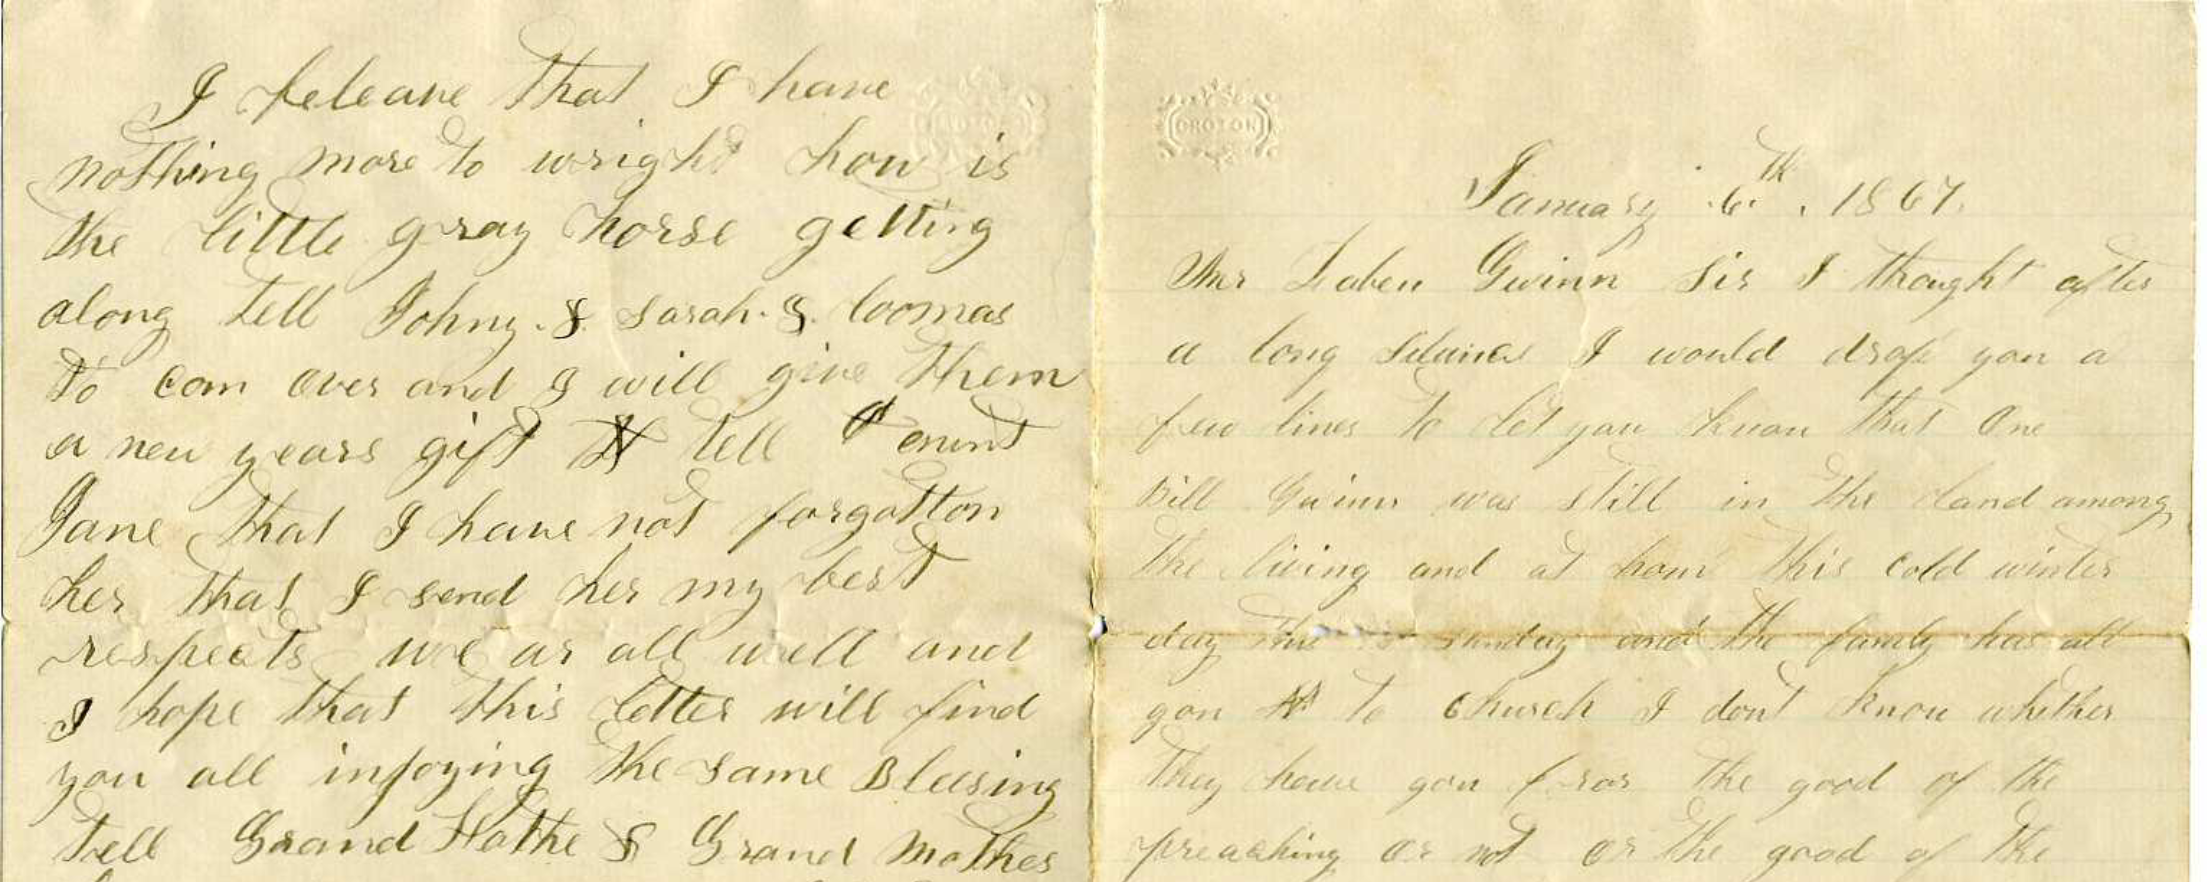 I beleave that I have
nothing more to wright how is
the little gray horse getting
along tell Johny & Sarah & loomas
to com over and I will give them
a new years gift tell
Jane that I have not forgotton
her that I send her my best
respects we ar all well and
I hope that this letter will find
you all injoying the same Blessing
tell Grand Fathe & Grand Mother
CROTON
January 6th, 1867.
Mr Laben Gwinn Sir I thought after
a long I would drop you a
few lines to let you know that One
Bill Gwinn was still in the land among
the living and at hom this cold winter
day sunday and the family has all
gon to church I dont know whether
they have gon for the good of the
preaching or not or the good of the